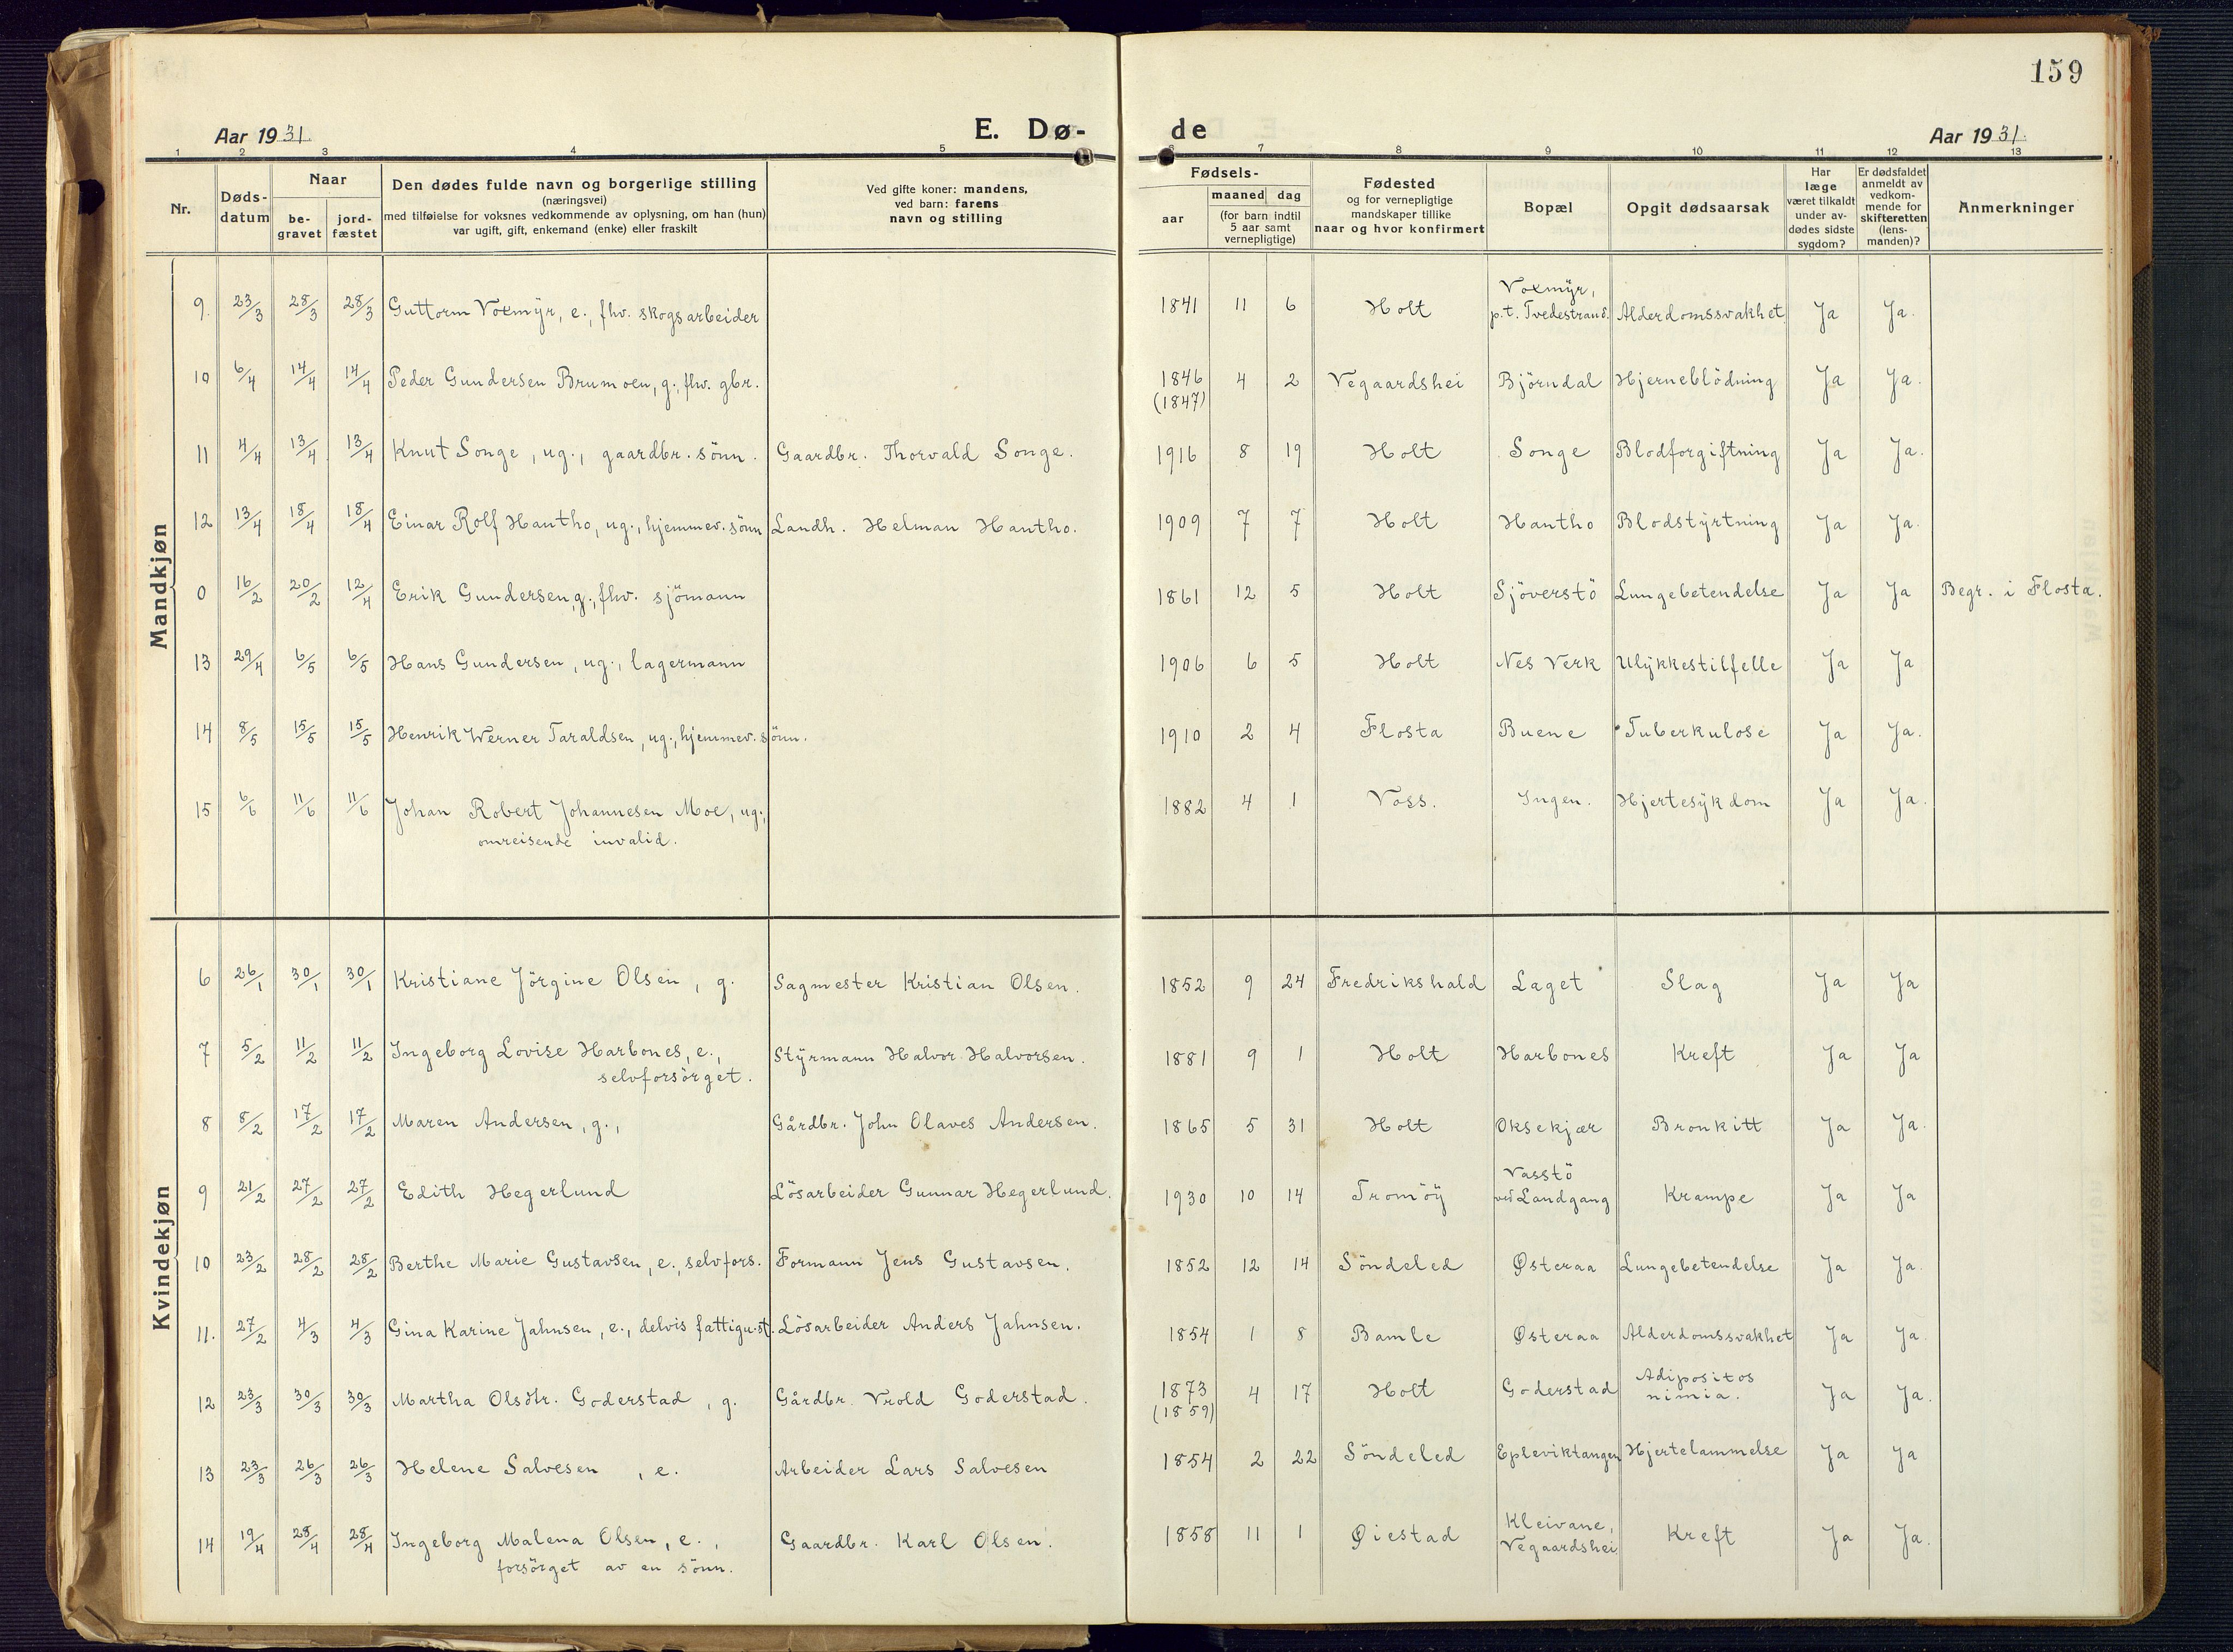 159
Aar 1931.
E. Dø-
de
Aar 1931.
1 2 3 4 5 6 7 8 9 10 11 12 13
Nr.
Døds-
datum
Naar
be-
gravet
jord-
fæstet
Den dødes fulde navn og borgerlige stilling
(næringsvei)
med tilføielse for voksnes vedkommende av oplysning, om han (hun)
var ugift, gift, enkemand (enke) eller fraskilt
Ved gifte koner: mandens,
ved barn: farens
navn og stilling
Fødsels-
aar
maaned dag
(for barn indtil
5 aar samt
vernepligtige)
Fødested
og for vernepligtige
mandskaper tillike
naar og hvor konfirmert
Bopæl
Opgit dødsaarsak
Har
læge
været tilkaldt
under av-
dødes sidste
sygdom?
Er dødsfaldet
anmeldt av
vedkom-
mende for
skifteretten
(lens-
manden)?
Anmerkninger
Mandkjøn
9. 23/3 28/3 28/3 Guttorm Voxmÿr, e., fhv. skogsarbeider 1841 11 6 Holt Voxmÿr,
p.t. Tvedestrand. Alderdomssvakhet. Ja Ja.
10 6/4 14/4 14/4 Peder Gundersen Brumoen, g., fhv. gbr. 1846 4 2 Vegaardshei Björndal Hjerneblödning Ja Ja.
(1847)
11 4/4 13/4 13/4 Knut Songe, ug., gaardbr. sönn. Gaardbr. Thorvald Songe. 1916 8 19 Holt Songe Blodforgiftning Ja Ja.
12 13/4 18/4 18/4 Einar Rolf Hantho, ug., hjemmev. sönn Landh. Helman Hantho. 1909 7 7 Holt Hantho Blodstÿrtning Ja Ja.
0 16/2 20/2 12/4 Erik Gundersen, g., fhv. sjömann 1861 12 5 Holt Sjöverstö Lungebetendelse Ja Ja Begr. i Flosta.
13 29/4 6/5 6/5 Hans Gundersen, ug., lagermann 1906 6 5 Holt Nes Verk Ulÿkkestilfelle Ja Ja
14 8/5 15/5 15/5 Henrik Werner Taraldsen, ug., hjemmev. sönn. 1910 2 4 Flosta Buene Tuberkulose Ja Ja.
15 6/6 11/6 11/6 Johan Robert Johannesen Moe, ug., 1882 4 1 Voss. Ingen. Hjertesÿkdom Ja Ja.
omreisende invalid.
Kvindekjøn
6 26/1 30/1 30/1 Kristiane Jörgine Olsen, g. Sagmester Kristian Olsen. 1852 9 24 Fredrikshald Laget Slag Ja Ja
7 5/2 11/2 11/2 Ingeborg Lovise Harbones, e., Stÿrmann Halvor Halvorsen. 1881 9 1 Holt Harbones Kreft Ja Ja
selvforsörget.
8 8/2 17/2 17/2 Maren Andersen, g., Gårdbr. John Olaves Andersen. 1865 5 31 Holt Oksekjær Bronkitt Ja Ja.
9 21/2 27/2 27/2 Edith Hegerlund Lösarbeider Gunnar Hegerlund. 1930 10 14 Tromöÿ Vasstö
ved Landgang Krampe Ja Ja
10 23/2 28/2 28/2 Berthe Marie Gustavsen, e., selvfors. Formann Jens Gustavsen. 1852 12 14 Söndeled Østeraa Lungebetendelse Ja Ja.
11. 27/2 4/3 4/3 Gina Karine Jahnsen, e., delvis fattigu.st. Lösarbeider Anders Jahnsen. 1854 1 8 Bamle Østeraa Alderdomssvakhet Ja Ja.
12 23/3 30/3 30/3 Martha Olsdtr. Goderstad, g. Gårdbr. Vrold Goderstad. 1873 4 17 Holt Goderstad Adipositos
(1859) nimia. Ja Ja.
13 23/3 26/3 26/3 Helene Salvesen, e. Arbeider Lars Salvesen 1854 2 22 Söndeled Epleviktangen Hjertelammelse Ja Ja
14 19/4 28/4 28/4 Ingeborg Malena Olsen, e., Gaardbr. Karl Olsen. 1858 11 1 Øiestad Kleivane,
Vegaardshei. Kreft Ja Ja.
forsörget av en sönn.